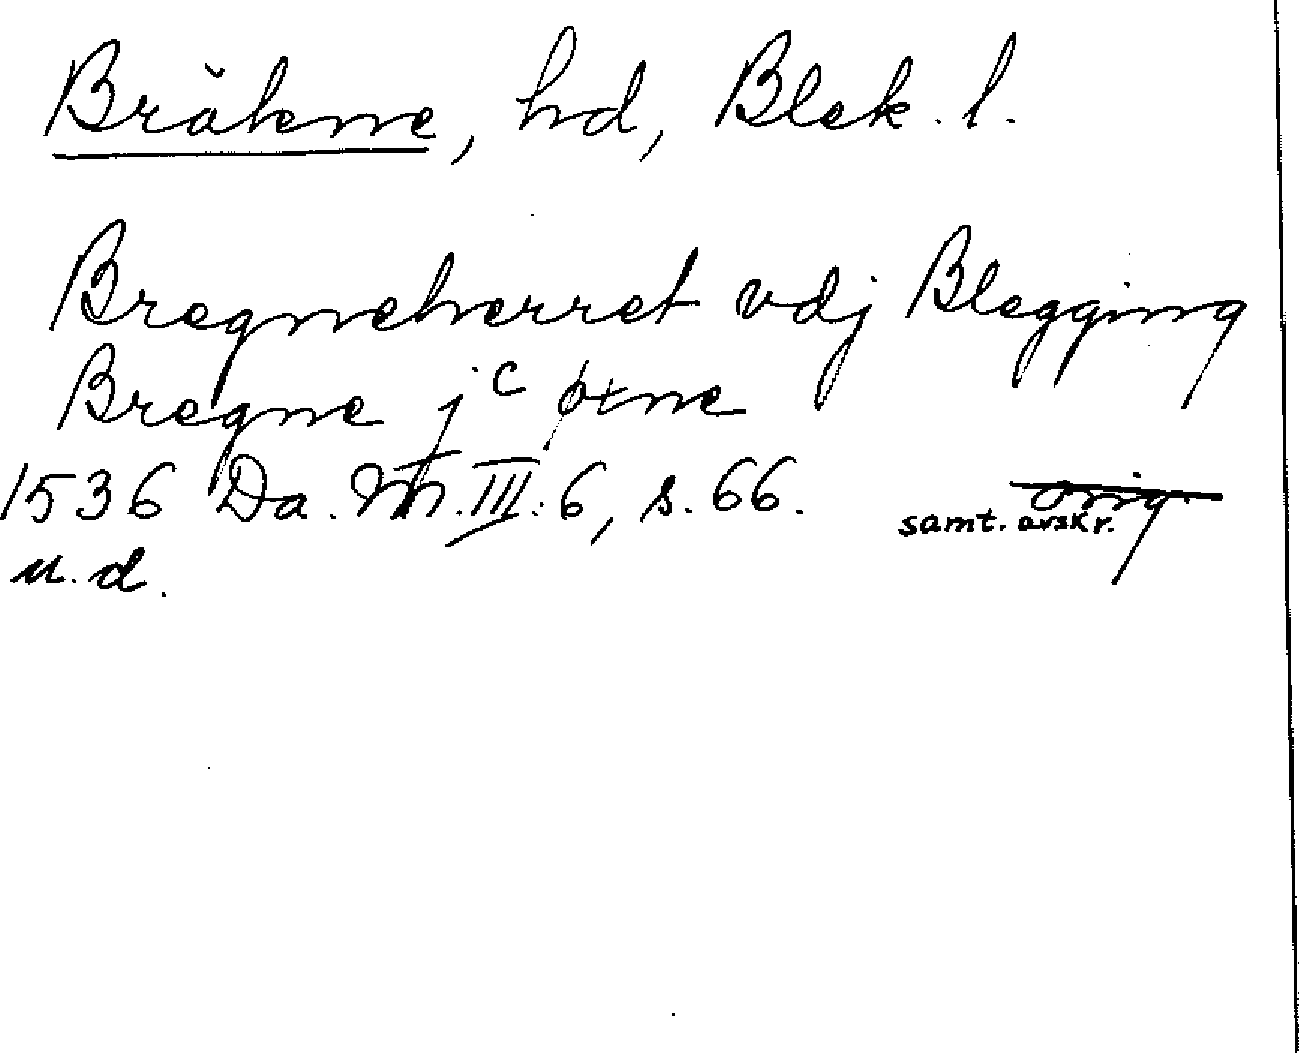 Bräkne, hd, Blek. l.
Bregneherret vdj Blegging
Bregne j c øxne
1536 Da. M. III: 6, s. 66. orig
samt. avskr.
u. d.